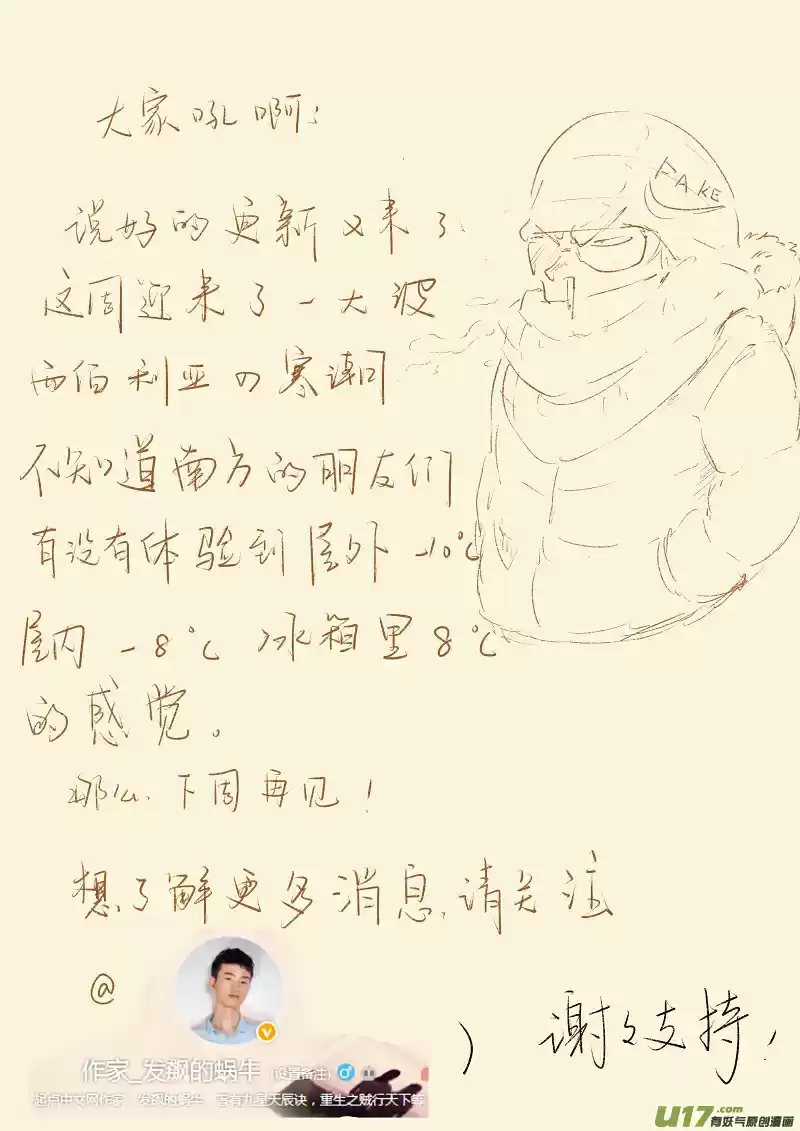 大家吼啊:
FAKE
说好的更新又来了.
这周迎来了一大波
西伯利亚の寒潮
不知道南方的朋友们
有没有体验到屋外-10℃
屋内-8℃ 冰箱里8℃
的感觉。
那么.下周再见!
想了解更多消息,请关注
@
作家_发飙的蜗牛 (设置备注)
起点中文网作家 发飙的蜗牛 著有九星天辰诀,重生之贼行天下等
)
谢々支持!
U17.com
有妖气原创漫画